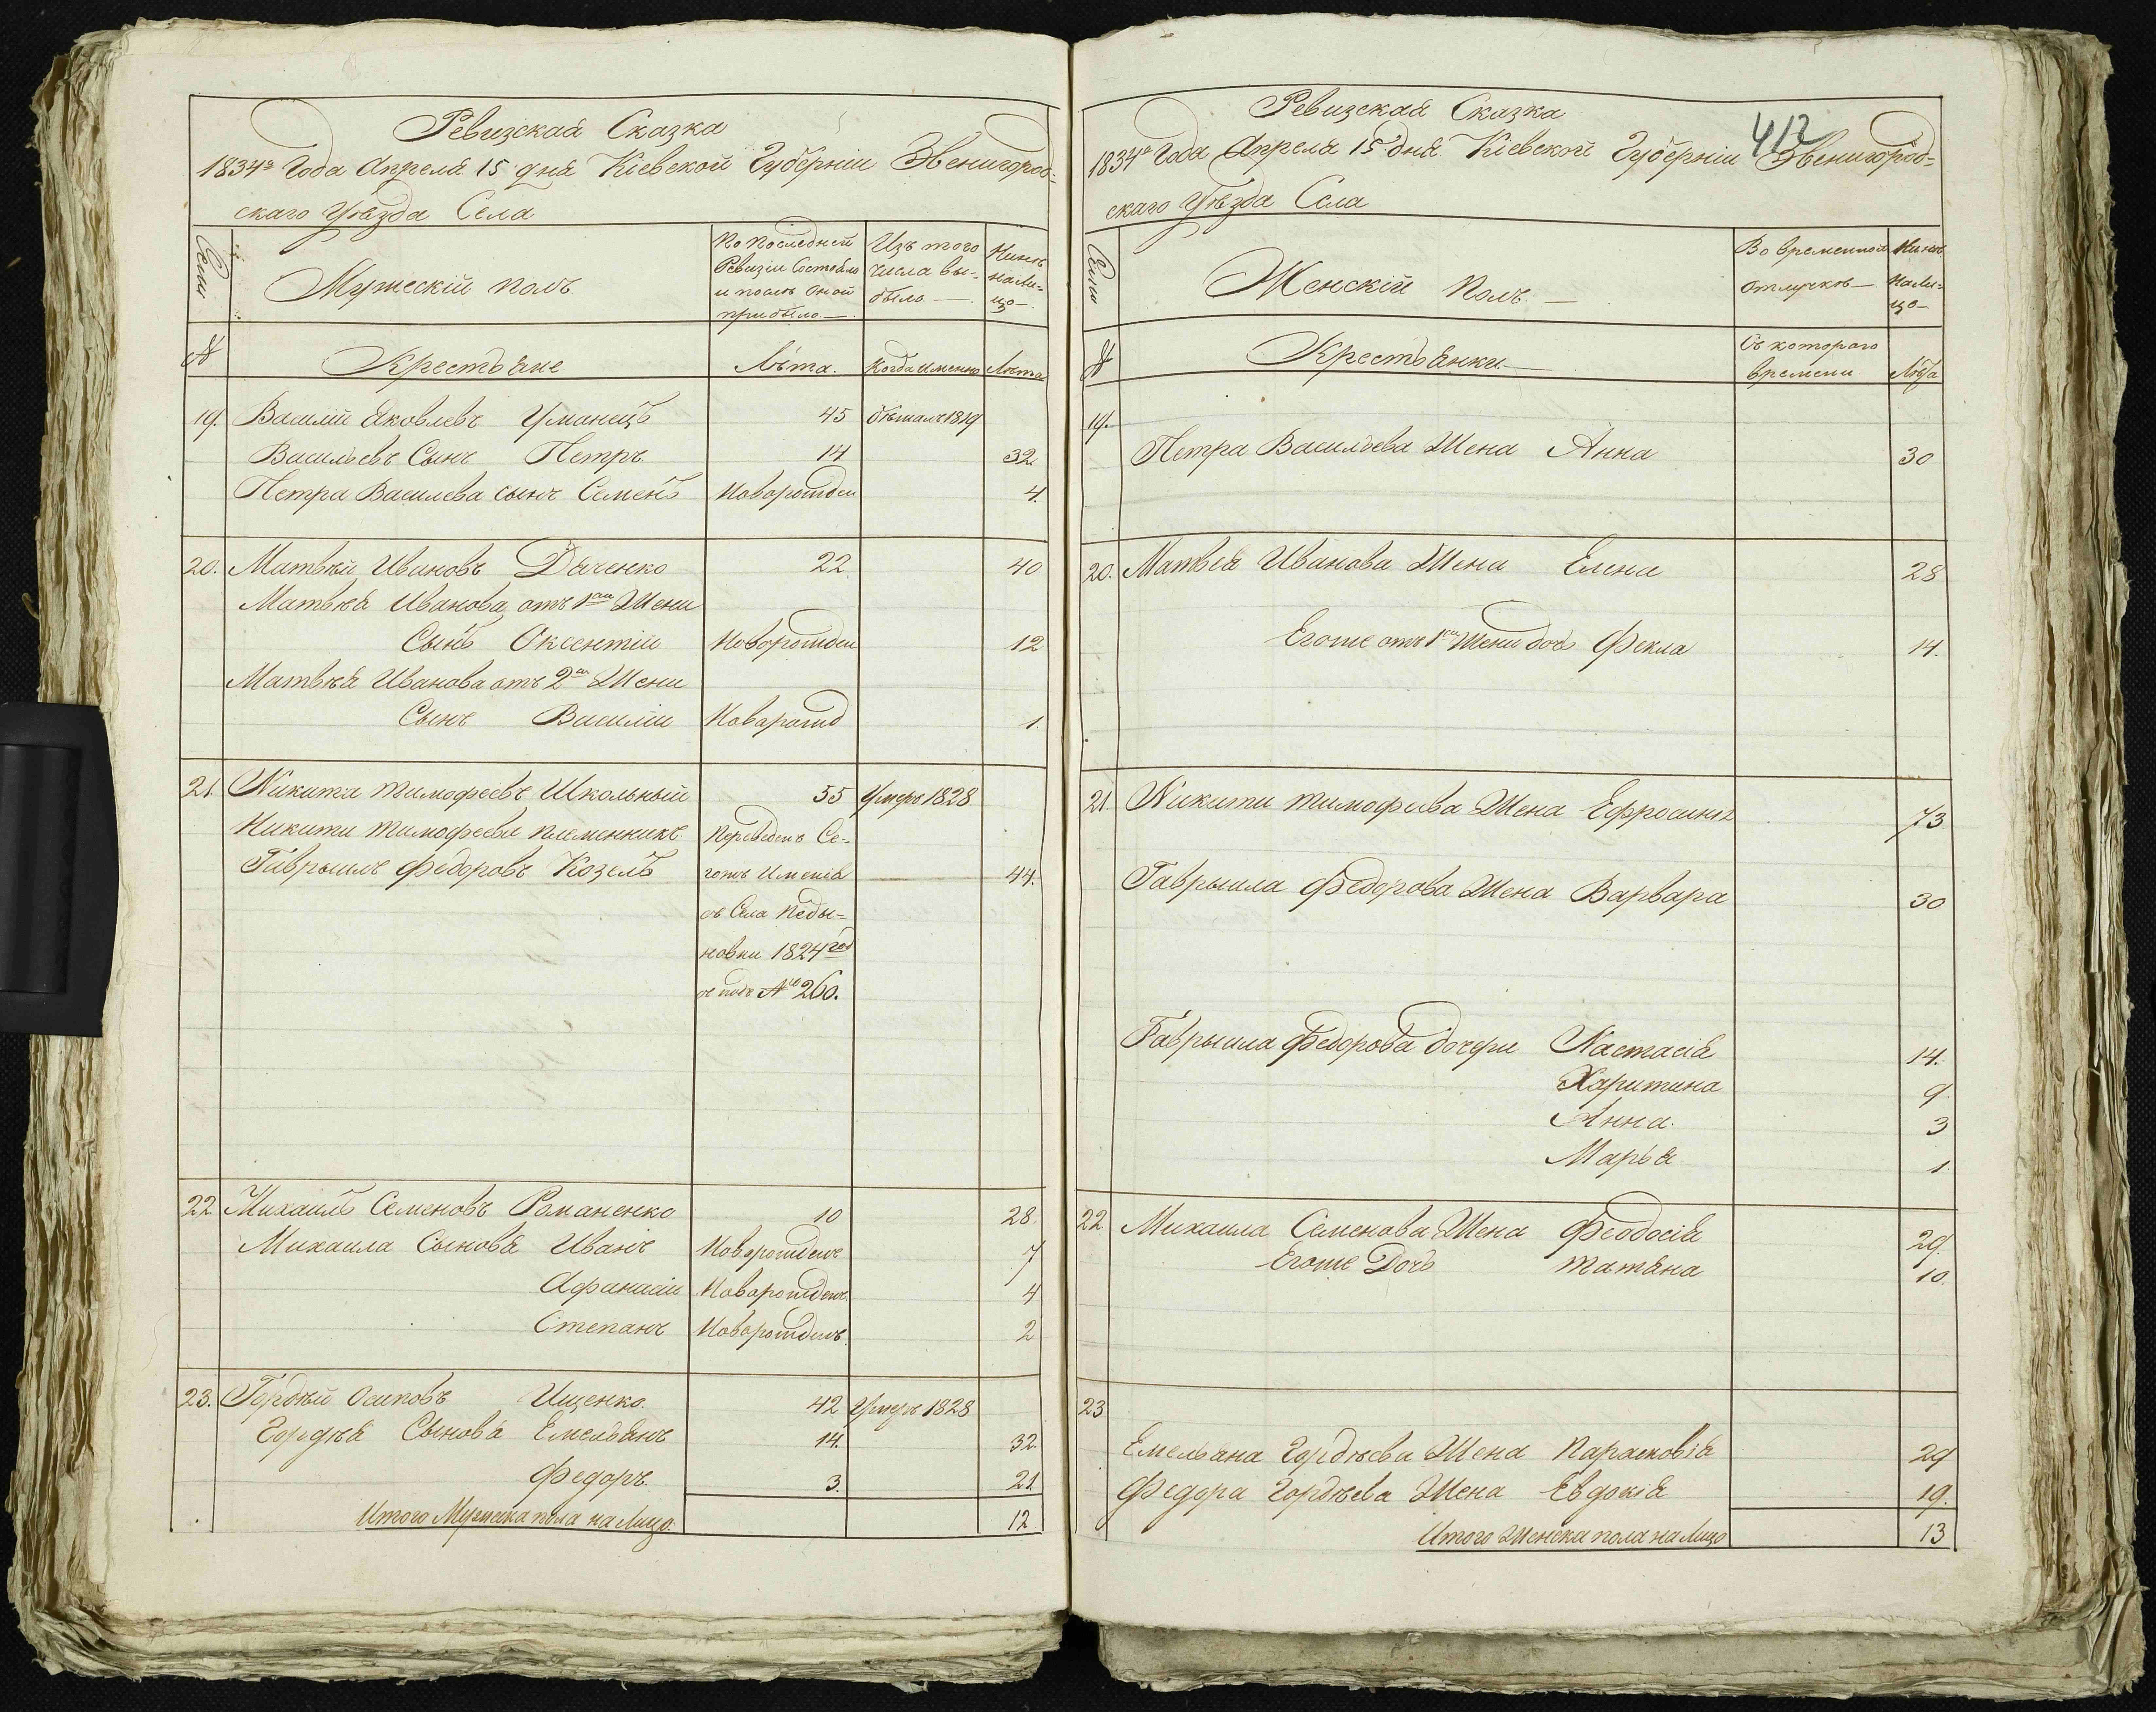 Ревизская Сказка
1834го Года Апреля 15 дня Кіевской Губерніи Звенигород-
скаго Уѣзда Села
Семьи
Мужескій полъ
По последней
Ревизіи Состояло
и послѣ оной
прибыло —
Изъ того
числа вы-
было —
Нынѣ
на Ли-
цо —
№
Крестьяне
Лѣта.
Когда именно
Лѣта
19. Василій Яковлевъ Уманецъ 45 бѣжалъ 1819
Васильевъ Сынъ Петръ 14 32
Петра Василева сынъ Семенъ Новорожден 4.
20. Матвѣй Ивановъ Дяченко 22 40
Матвѣя Иванова отъ 1ой Жени
Сынъ Оксентій Новорожден 12
Матвѣя Иванова отъ 2ой Жени
Сынъ Василій Новорожд 1.
21. Никита Тимофеевъ Школьный 55 Умеръ 1828
Никити Тимофеева племенникъ Переведенъ Се-
Гаврыилъ Федоровъ Козелъ гожъ Имения 44.
съ Села Педы-
новки 1824 год
№ 260.
22 Михаилъ Семеновъ Романенко 10 28.
Михаила Сыновя Иванъ Новорожденъ 7
Афанасій Новорожденъ 4
Степанъ Новорожденъ 2
23. Гордѣй Осиповъ Ищенко. 42 Умеръ 1828
Гордѣя Сыновя Емельянъ 14. 32.
Федоръ 3. 21.
Итого Мужеска пола на Лицо. 12
412
Ревизская Сказка
1834го Года Апреля 15 дня Кіевской Губерніи Звенигород-
скаго Уѣзда Села
Семьи
Женскій Полъ —
Во временной
отлучкѣ —
Нынѣ
На Ли-
цо —
№
Крестьянки —
Съ котораго
времени
Лѣта
19.
Петра Васильева Жена Анна 30
20. Матвея Иванова Жена Елена 28
Егоже отъ 1ой Жени дочь Фекла 14.
21. Никити Тимофиева Жена Ефросинія 73
Гаврыила Федорова Жена Варвара 30
Гаврыила Федорова дочери Настасія 14.
Харитина 9.
Анна. 3
Марья 1.
22 Михаила Семенова Жена Феодосія 29.
Егоже Дочь Татяна 10.
23
Емельяна Гордѣева Жена Парасковія 29
Федора Гордѣева Жена Евдокія 19.
Итого Женска пола на Лицо 13